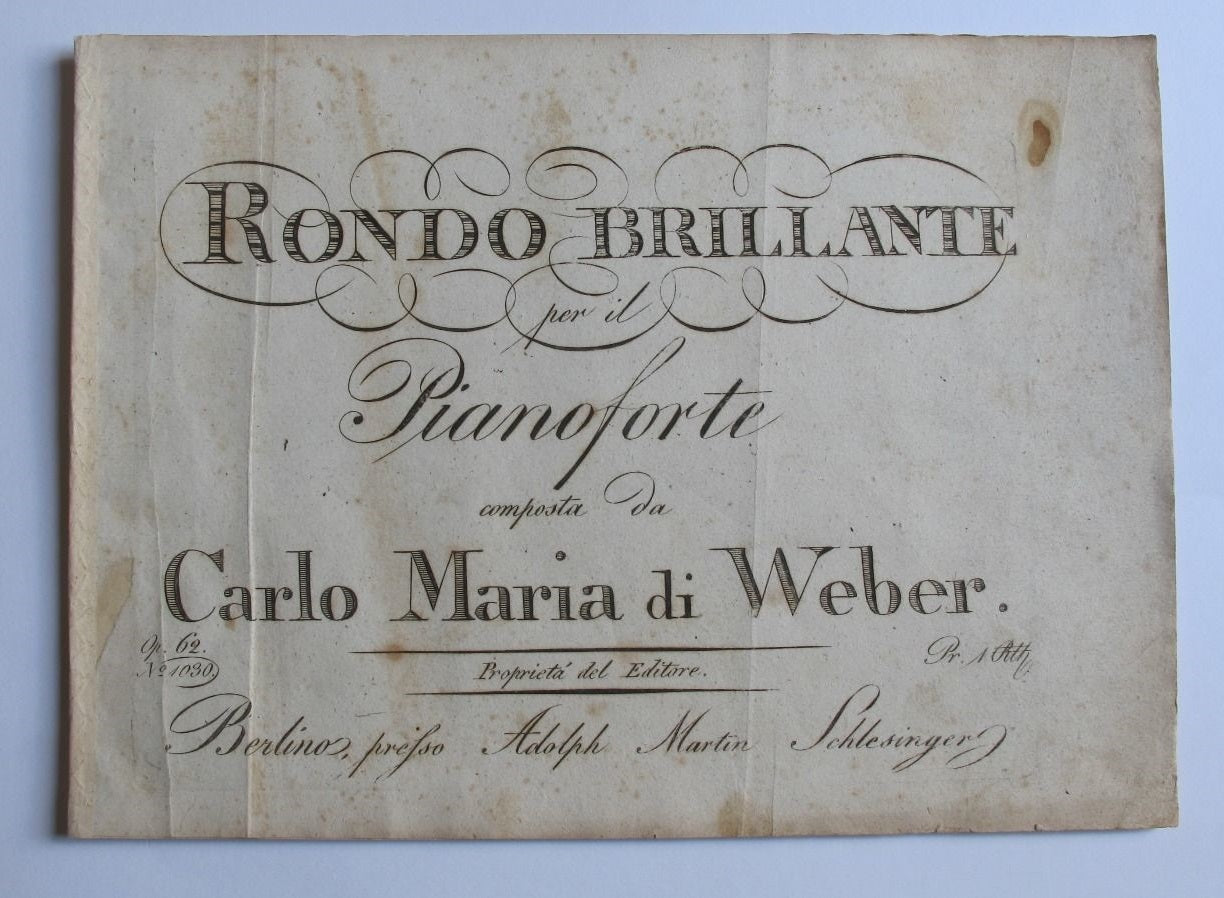 RONDO BRILLANTE
per il
Pianoforte
composta da
Carlo Maria di Weber.
Op. 62.
No 1030.
Proprietá del Editore.
Pr. 1 Rth.
Berlino, presso Adolph Martin Schlesinger